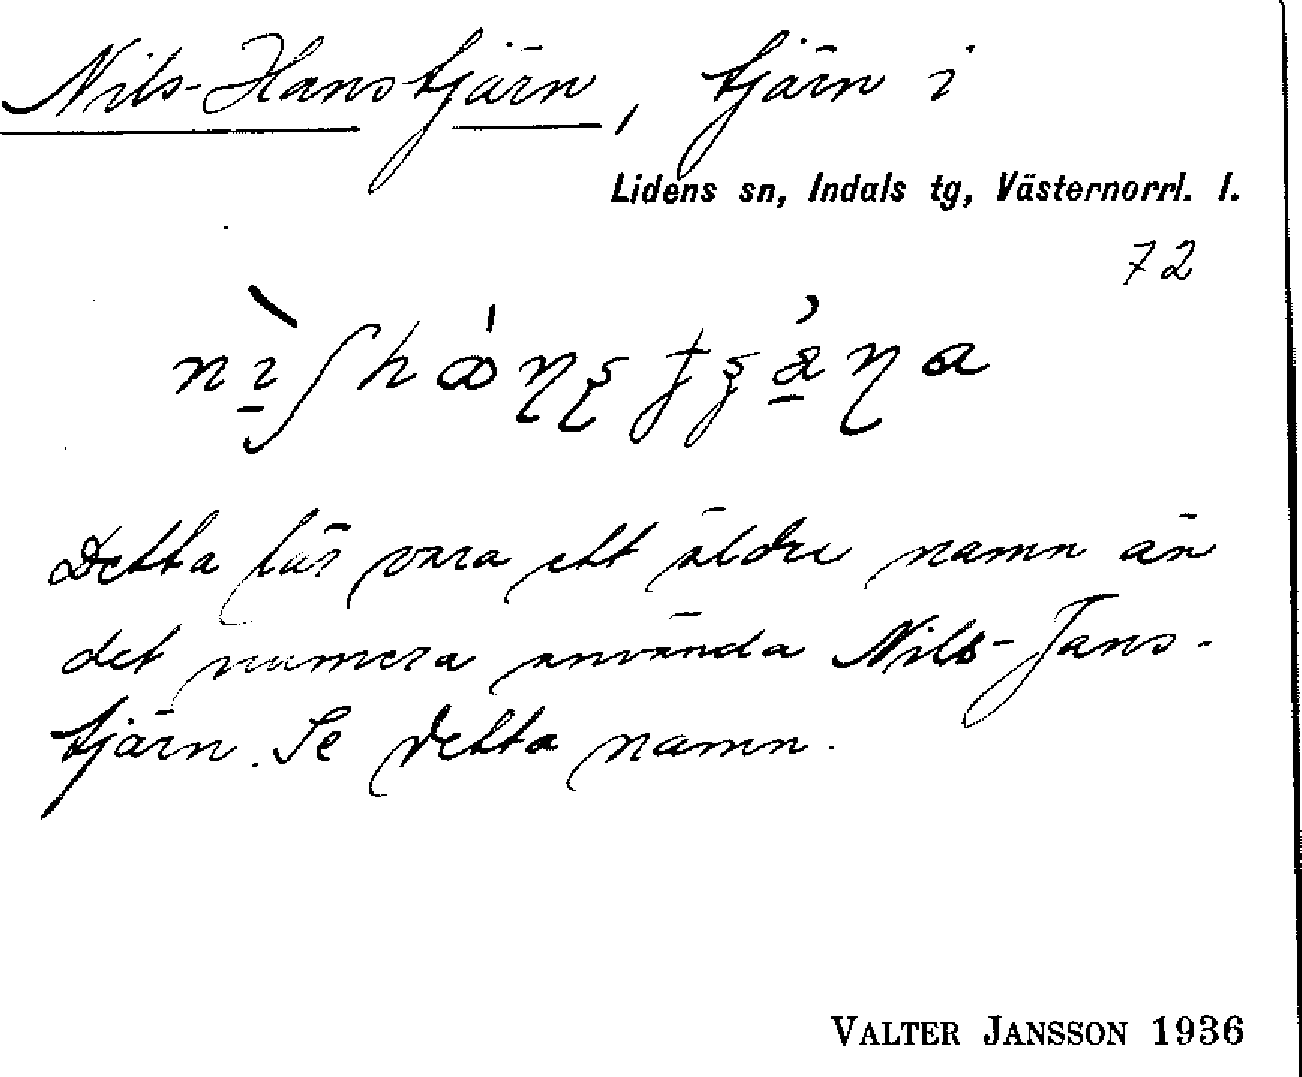 Nils-Hanstjärn, tjärn i
Lidens sn, Indals tg, Västernorrl. l.
72
Detta lär vara ett äldre namn än
det numera använda Nils-Jans-
tjärn. Se detta namn.
VALTER JANSSON 1936